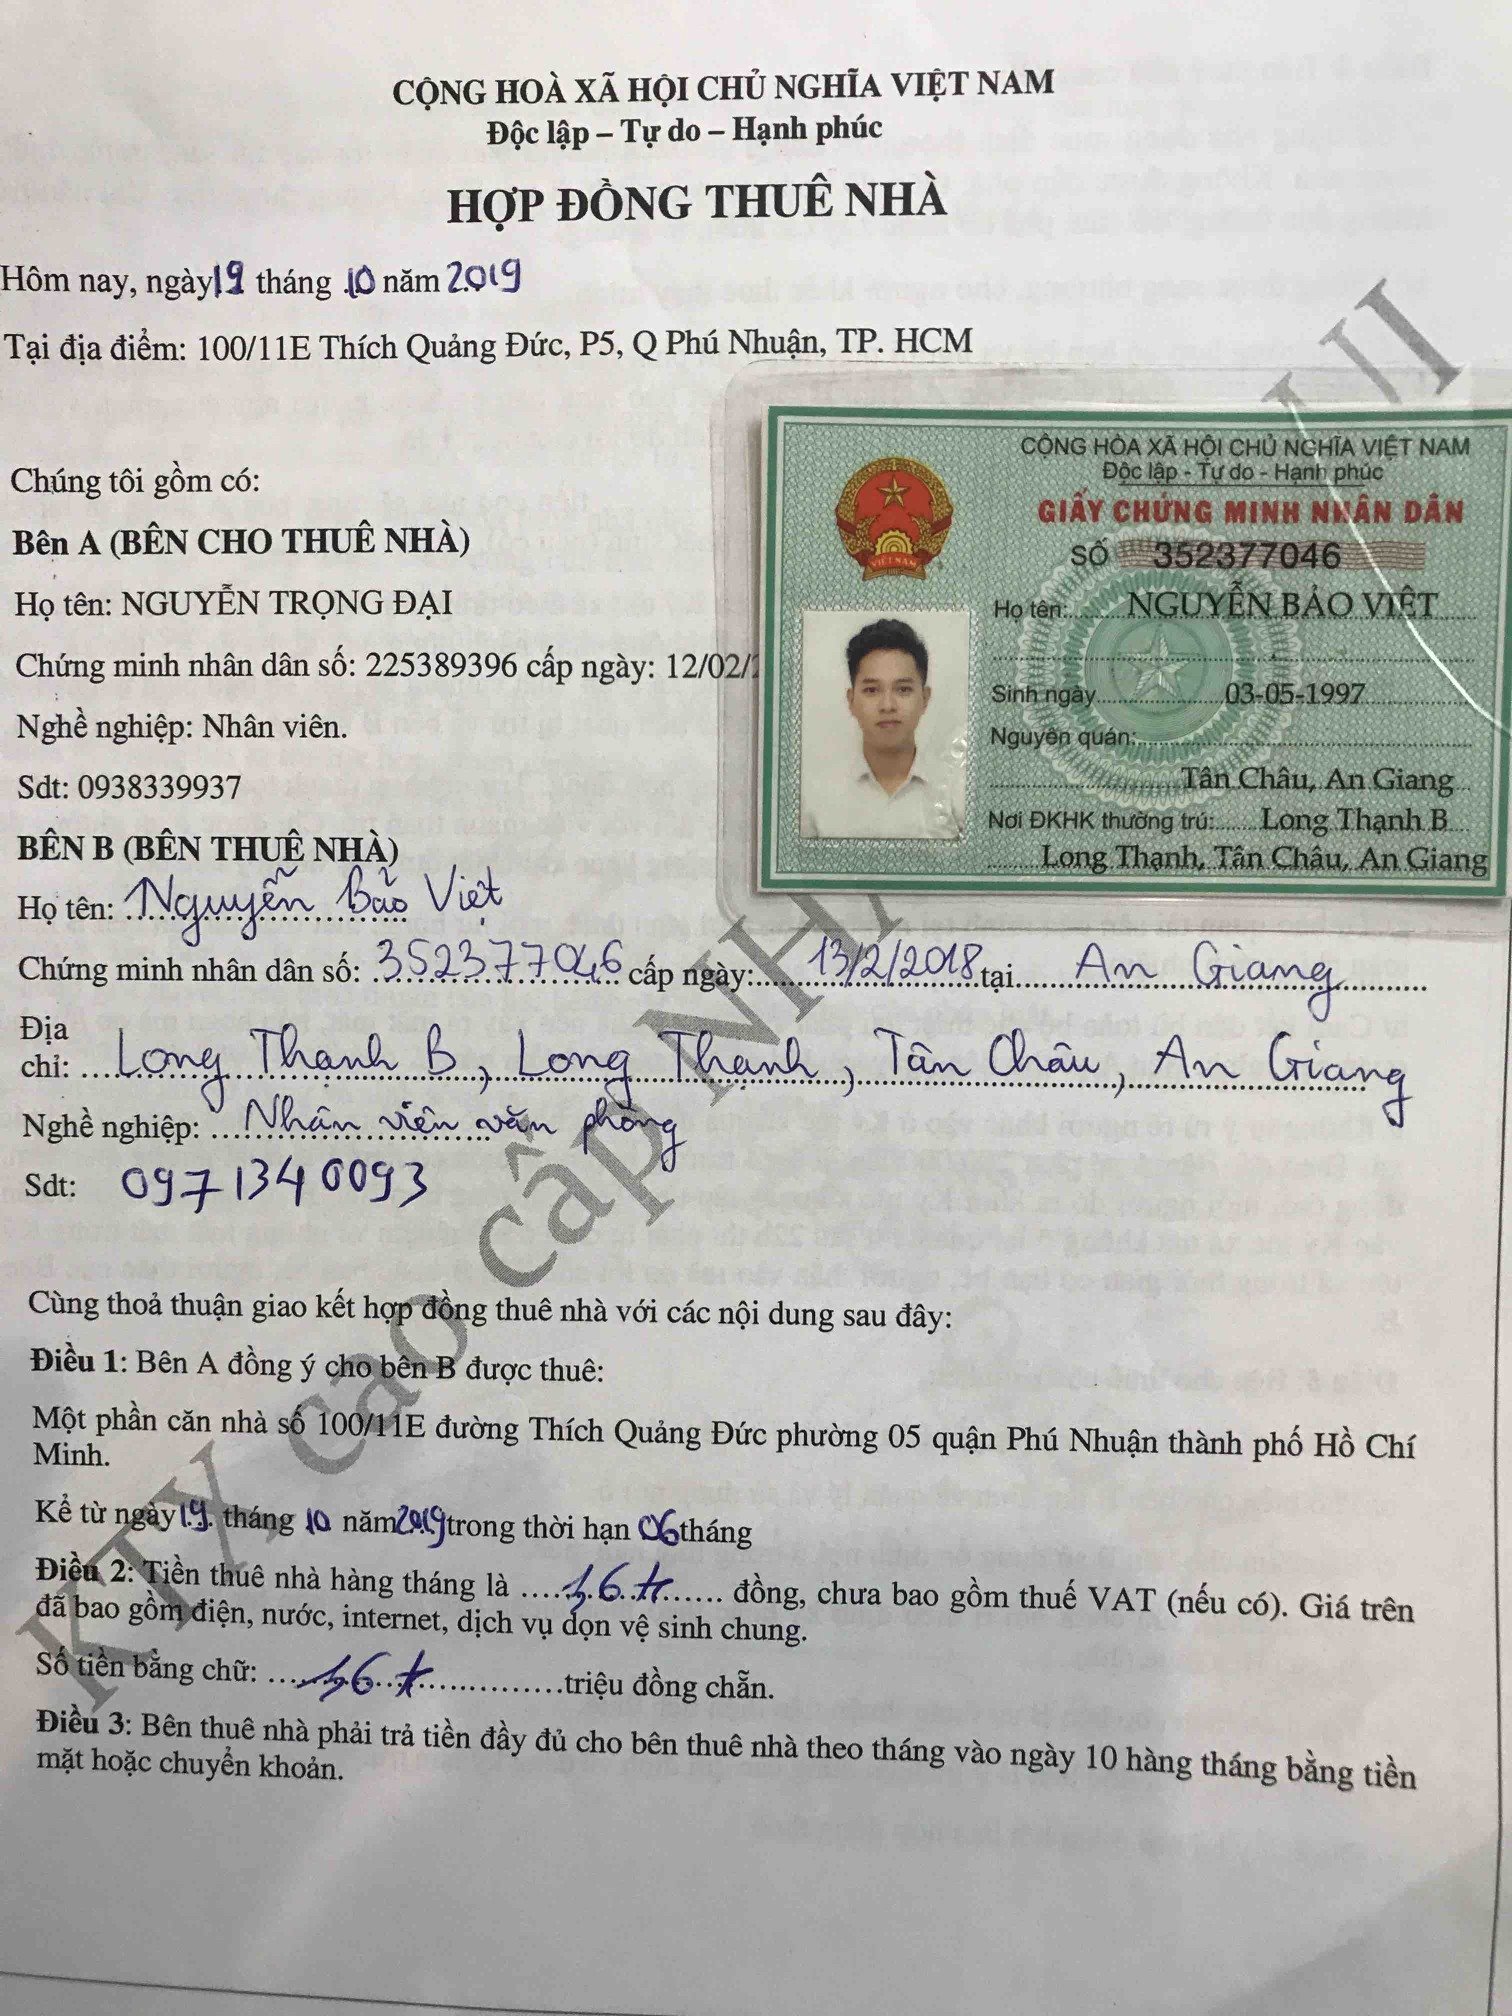 CỘNG HOÀ XÃ HỘI CHỦ NGHĨA VIỆT NAM
Độc lập – Tự do – Hạnh phúc
HỢP ĐỒNG THUÊ NHÀ
Hôm nay, ngày 19 tháng 10 năm 2019
Tại địa điểm: 100/11E Thích Quảng Đức, P5, Q Phú Nhuận, TP. HCM
Chúng tôi gồm có:
Bên A (BÊN CHO THUÊ NHÀ)
Họ tên: NGUYỄN TRỌNG ĐẠI
Chứng minh nhân dân số: 225389396 cấp ngày: 12/02/
Nghề nghiệp: Nhân viên.
Sdt: 0938339937
CỘNG HÒA XÃ HỘI CHỦ NGHĨA VIỆT NAM
Độc lập - Tự do - Hạnh phúc
GIẤY CHỨNG MINH NHÂN DÂN
SỐ 352377046
Họ tên: NGUYỄN BẢO VIỆT
Sinh ngày 03-05-1997
Nguyên quán:
Tân Châu, An Giang
Nơi ĐKHK thường trú: Long Thạnh B
Long Thạnh, Tân Châu, An Giang
VIỆT NAM
BÊN B (BÊN THUÊ NHÀ)
Họ tên: Nguyễn Bảo Việt
Chứng minh nhân dân số: 352377046 cấp ngày: 13/2/2018 tại An Giang
Địa
chỉ: Long Thạnh B, Long Thạnh, Tân Châu, An Giang
Nghề nghiệp: Nhân viên văn phòng
Sdt: 0971340093
Cùng thoả thuận giao kết hợp đồng thuê nhà với các nội dung sau đây:
Điều 1: Bên A đồng ý cho bên B được thuê:
Một phần căn nhà số 100/11E đường Thích Quảng Đức phường 05 quận Phú Nhuận thành phố Hồ Chí
Minh.
Kể từ ngày 19 tháng 10 năm 2019 trong thời hạn 06 tháng
Điều 2: Tiền thuê nhà hàng tháng là 1,6 tr đồng, chưa bao gồm thuế VAT (nếu có). Giá trên
đã bao gồm điện, nước, internet, dịch vụ dọn vệ sinh chung.
Số tiền bằng chữ: 1,6 triệu đồng chẵn.
Điều 3: Bên thuê nhà phải trả tiền đầy đủ cho bên thuê nhà theo tháng vào ngày 10 hàng tháng bằng tiền
mặt hoặc chuyển khoản.
KTX cao cấp